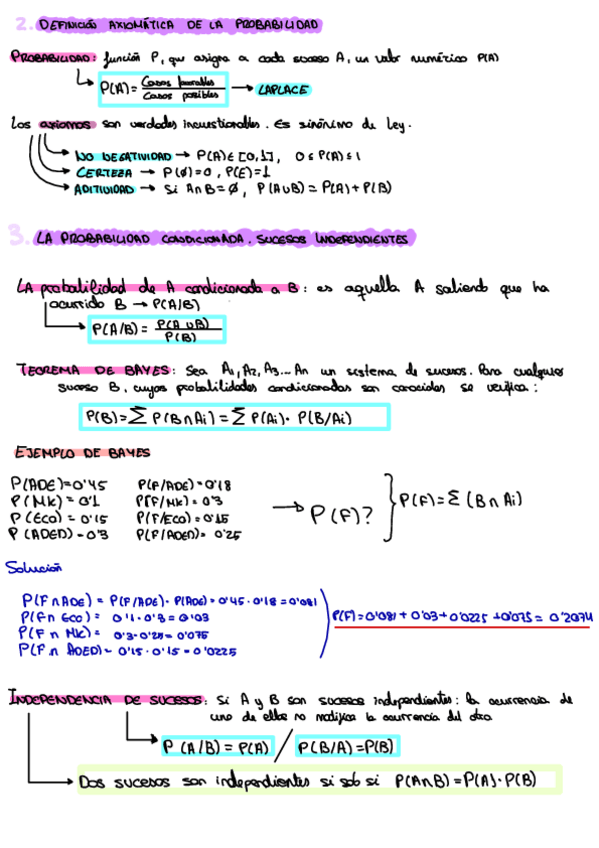 2. DEFINICIÓN AXIOMÁTICA DE LA PROBABILIDAD
PROBABILIDAD: función P, que asigna a cada suceso A, un valor numérico P(A)
P(A) = Casos favorables / Casos posibles → LAPLACE
Los axiomas son verdades incuestionables. Es sinónimo de Ley.
NO NEGATIVIDAD → P(A) ∈ [0,1], 0 ≤ P(A) ≤ 1
CERTEZA → P(Ø)=0, P(E)=1
ADITIVIDAD → Si A∩B=Ø, P(A∪B) = P(A)+P(B)
3. LA PROBABILIDAD CONDICIONADA. SUCESOS INDEPENDIENTES
LA probabilidad de A condicionada a B: es aquella A saliendo que ha
ocurrido B → P(A/B)
P(A/B) = P(A∪B) / P(B)
TEOREMA DE BAYES: Sea A1, A2, A3... An un sistema de sucesos. Para cualquier
suceso B, cuyas probabilidades condicionadas son conocidas se verifica:
P(B) = Σ P(B∩Ai) = Σ P(Ai)· P(B/Ai)
EJEMPLO DE BAYES
P(ADE)=0'45 P(F/ADE)=0'18
P(Mk) = 0'1 P(F/Mk)=0'3
P(Eco) = 0'15 P(F/Eco)=0'15
P(ADED)=0'3 P(F/ADED)= 0'25
→ P(F)? } P(F)= Σ (B∩Ai)
Solución
P(F∩ADE) = P(F/ADE)· P(ADE)= 0'45·0'18=0'081
P(F∩Eco) = 0'1·0'3=0'03
P(F∩Mk) = 0'3·0'25=0'075
P(F∩ADED)=0'15·0'15=0'0225
P(F)=0'081+0'03+0'0225+0'075= 0'2074
INDEPENDENCIA DE SUCESOS: Si A y B son sucesos independientes: la ocurrencia de
uno de ellos no modifica la ocurrencia del otro
P(A/B) = P(A) / P(B/A)=P(B)
Dos sucesos son independientes si sob si P(A∩B)=P(A)·P(B)